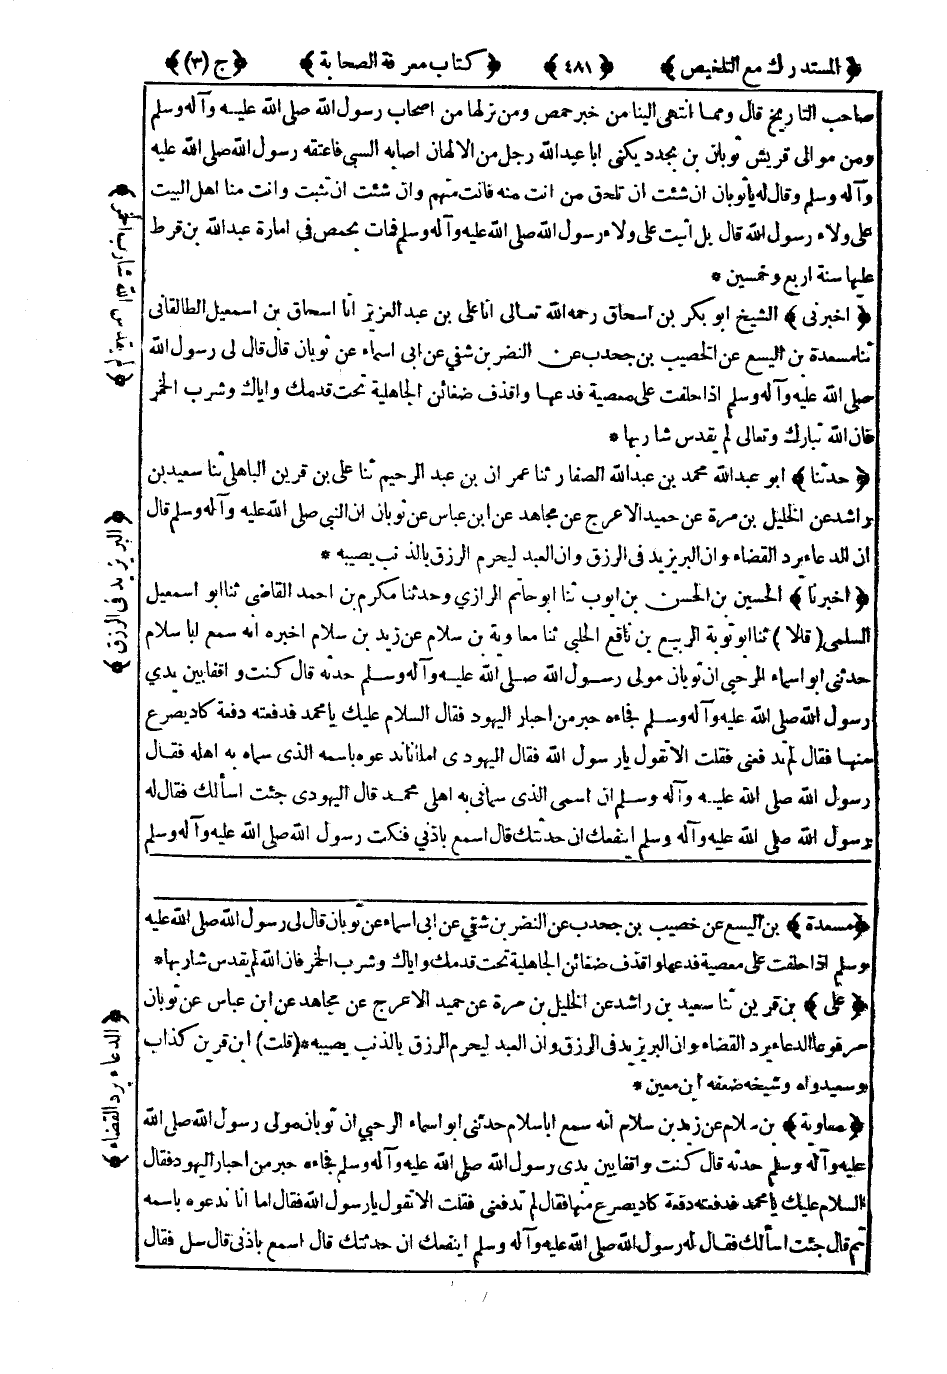 ﴿المستدرك مع التلخيص﴾ ﴿٤٨١﴾ ﴿كتاب معرفة الصحابة﴾ ﴿ج (٣)﴾
صاحب التاريخ قال ومما انتهى الينا من خبر حمص ومن نزلها من اصحاب رسول الله صلى الله عليه وآله وسلم
ومن موالى قريش ثوبان بن بجدد يكنى ابا عبد الله رجل من الالهان اصابه السبى فاعتقه رسول الله صلى الله عليه
وآله وسلم وقال له ياثوبان ان شئت ان تلحق من انت منه فانت منهم وان شئت ان تثبت وانت منا اهل البيت
على ولاء رسول الله قال بل اثبت على ولاء رسول الله صلى الله عليه وآله وسلم فمات بحمص فى امارة عبد الله بن قرط
عليها سنة اربع وخمسين *
﴿اخبرنى﴾ الشيخ ابو بكر بن اسحاق رحمه الله تعالى انا على بن عبد العزيز انا اسحاق بن اسمعيل الطالقانى
ثنا مسعدة بن اليسع عن الخصيب بن جحدب عن النضر بن شفي عن ابى اسماء عن ثوبان قال قال لى رسول الله
صلى الله عليه وآله وسلم اذا حلفت على معصية فدعها واقذف ضغائن الجاهلية تحت قدمك واياك وشرب الخمر
فان الله تبارك وتعالى لم يقدس شاربها *
﴿حدثنا﴾ ابو عبد الله محمد بن عبد الله الصفار ثنا عمر ان بن عبد الرحيم ثنا على بن قرين الباهلى ثنا سعيد بن
راشد عن الخليل بن مرة عن حميد الاعرج عن مجاهد عن ابن عباس عن ثوبان ان النبي صلى الله عليه وآله وسلم قال
ان الدعاء يرد القضاء وان البر يزيد فى الرزق وان العبد ليحرم الرزق بالذنب يصيبه *
﴿اخبرنا﴾ الحسين بن الحسن بن ايوب ثنا ابو حاتم الرازي وحدثنا مكرم بن احمد القاضى ثنا ابو اسمعيل
السلمى (قالا) ثنا ابو توبة الربيع بن نافع الحلبى ثنا معاوية بن سلام عن زيد بن سلام اخبره انه سمع ابا سلام
حدثنى ابو اسماء الرحبى ان ثوبان مولى رسول الله صلى الله عليه وآله وسلم حدثه قال كنت واقفا بين يدي
رسول الله صلى الله عليه وآله وسلم فجاءه حبر من احبار اليهود فقال السلام عليك يا محمد فدفعته دفعة كاد يصرع
منها فقال لم تدفعنى فقلت الا تقول يا رسول الله فقال اليهودى اما انا ندعوه باسمه الذى سماه به اهله فقال
رسول الله صلى الله عليه وآله وسلم ان اسمى الذى سمانى به اهلى محمد قال اليهودى جئت اسألك فقال له
رسول الله صلى الله عليه وآله وسلم اينفعك ان حدثتك قال اسمع باذني فنكت رسول الله صلى الله عليه وآله وسلم
﴿مسعدة﴾ بن اليسع عن خصيب بن جحدب عن النضر بن شفي عن ابى اسماء عن ثوبان قال لى رسول الله صلى الله عليه
وسلم اذا حلفت على معصية فدعها واقذف ضغائن الجاهلية تحت قدمك واياك وشرب الخمر فان الله لم يقدس شاربها *
﴿على﴾ بن قرين ثنا سعيد بن راشد عن الخليل بن مرة عن حميد الاعرج عن مجاهد عن ابن عباس عن ثوبان
مرفوعا الدعاء يرد القضاء وان البر يزيد فى الرزق وان العبد ليحرم الرزق بالذنب يصيبه * (قلت) ابن قرين كذاب
وسعيد واه وشيخه ضعفه ابن معين *
﴿معاوية﴾ بن سلام عن زيد بن سلام انه سمع ابا سلام حدثنى ابو اسماء الرحبي ان ثوبان مولى رسول الله صلى الله
عليه وآله وسلم حدثه قال كنت واقفا بين يدى رسول الله صلى الله عليه وآله وسلم فجاءه حبر من احبار اليهود فقال
السلام عليك يا محمد فدفعته دفعة كاد يصرع منها فقال لم تدفعنى فقلت الا تقول يا رسول الله فقال اما انا ندعوه باسمه
ثم قال جئت اسألك فقال له رسول الله صلى الله عليه وآله وسلم اينفعك ان حدثتك قال اسمع باذنى قال سل فقال
﴿لم يقدس الله شارب الخمر﴾
﴿البر يزيد فى الرزق﴾
﴿الدعاء يرد القضاء﴾